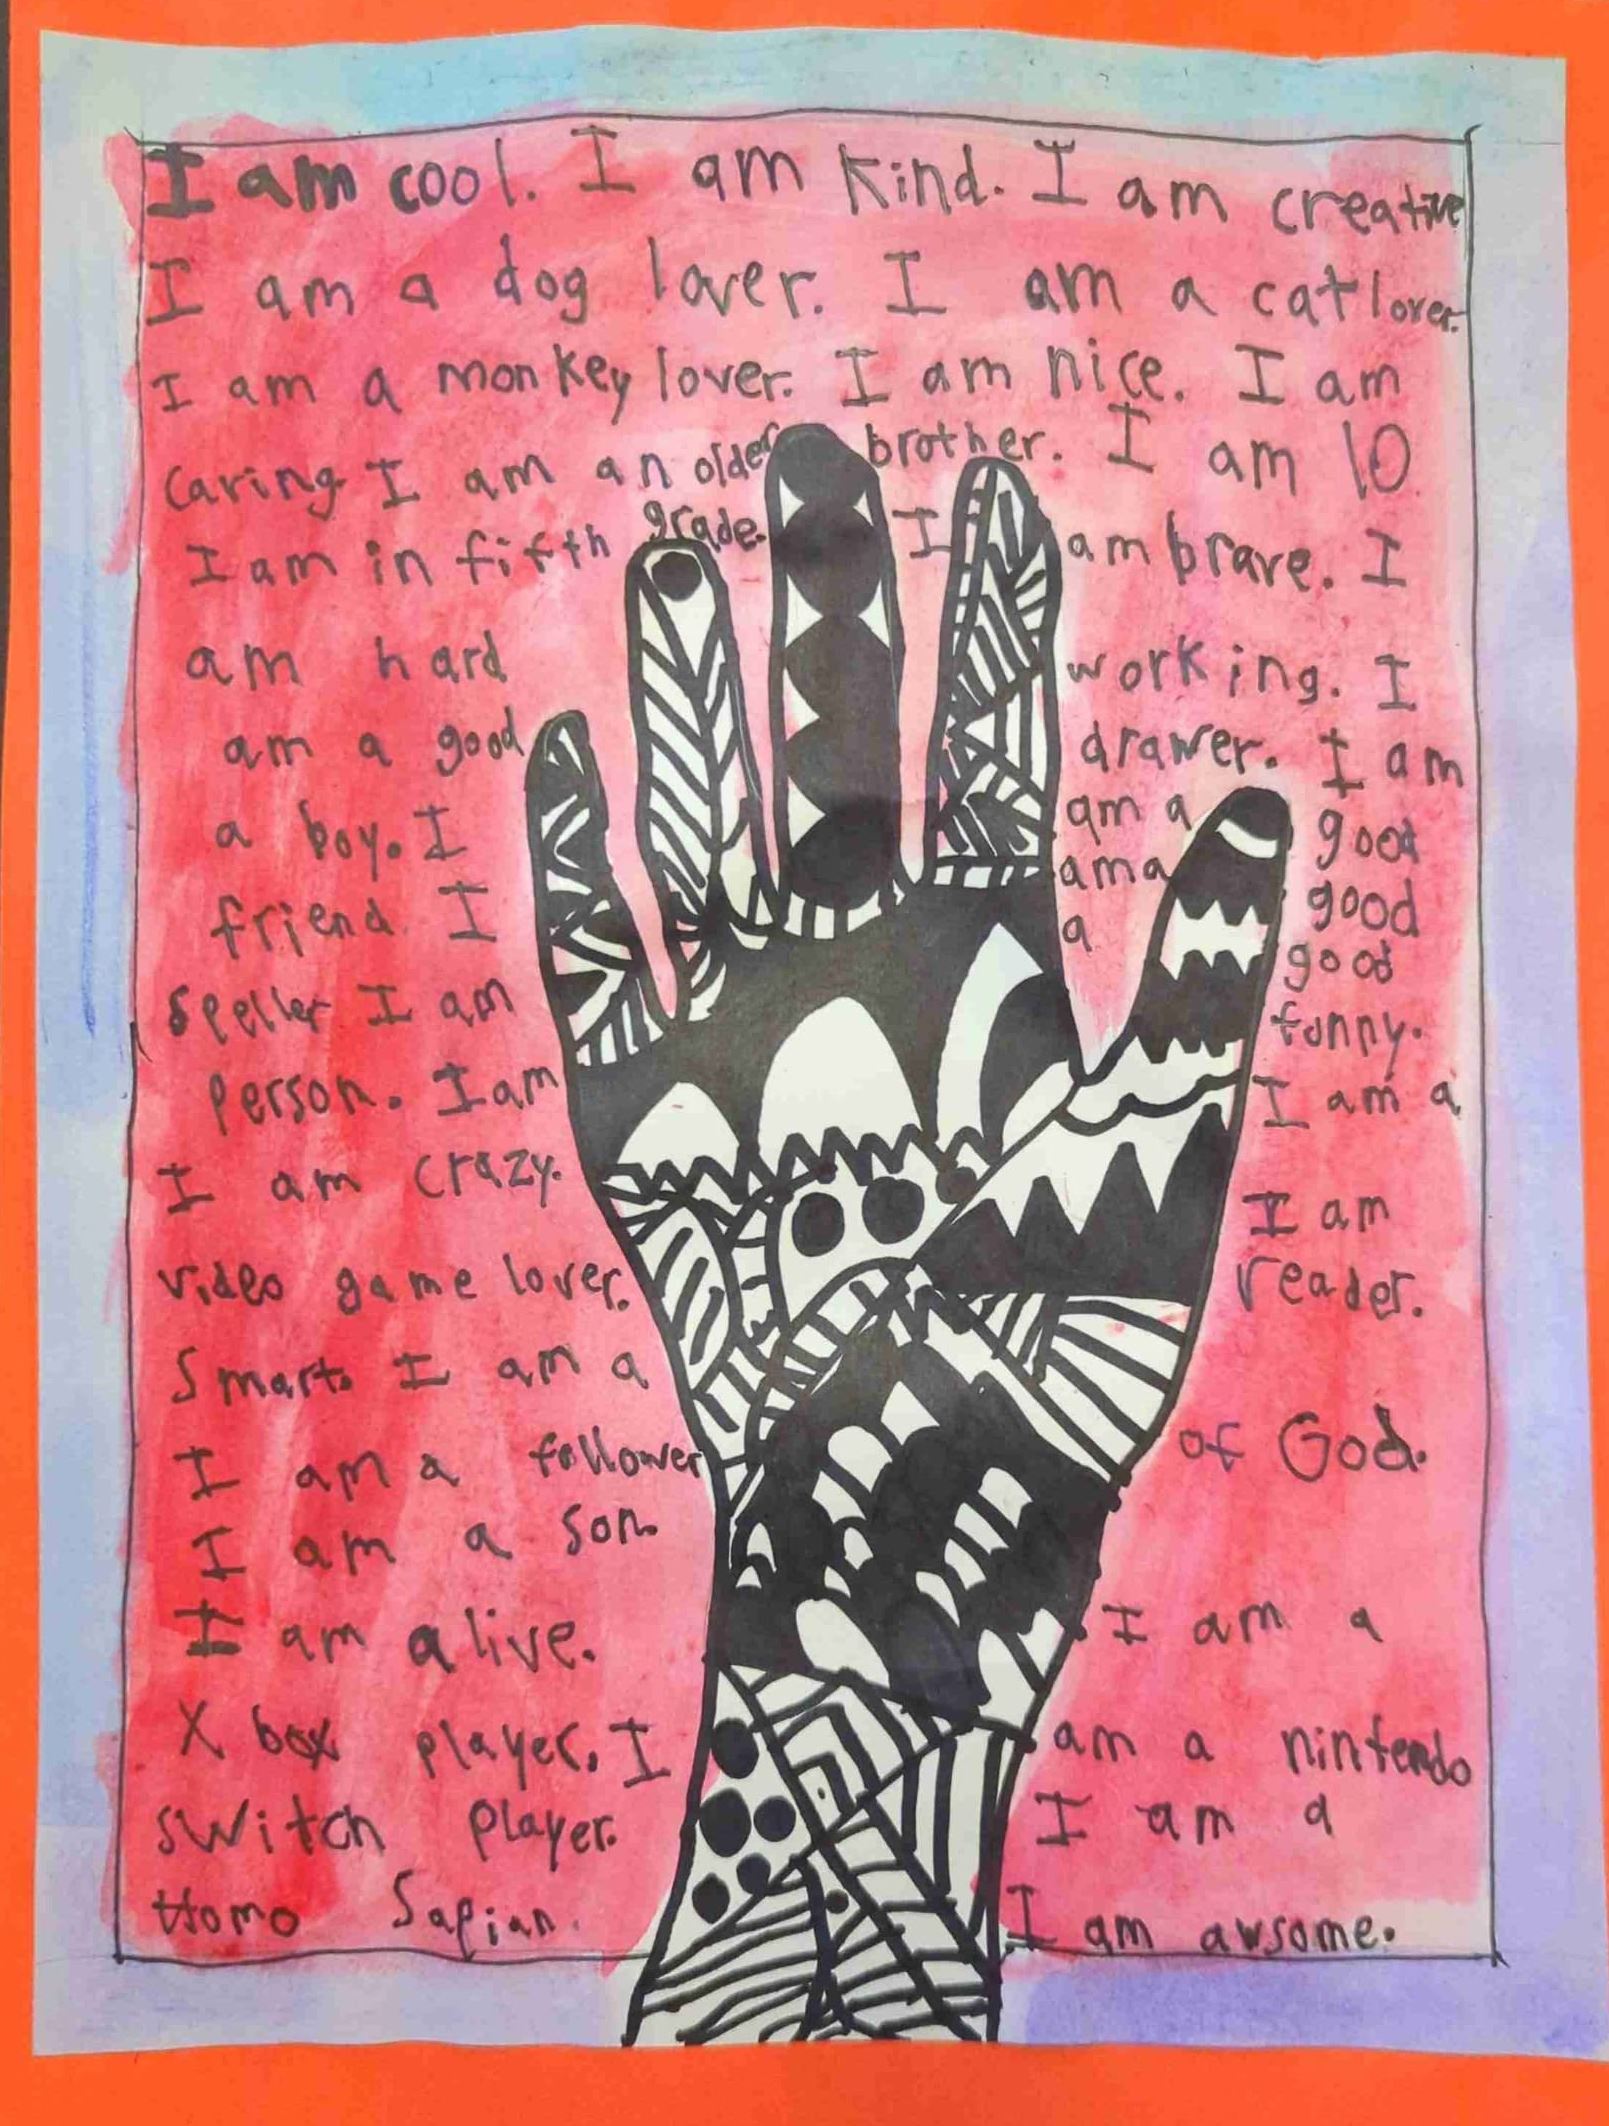 I am cool. I am kind. I am creative
I am a dog lover. I am a cat lover.
I am a monkey lover. I am nice. I am
caring. I am an older brother. I am 10
I am in fifth grade. I am brave. I
am hard working. I
am a good drawer. I am
a boy. I am a good
friend. I am a good
speller I am a good
person. I am funny.
I am crazy. I am a
video game lover. I am
smart. I am a reader.
I am a follower of God.
I am a son.
I am alive. I am a
X box player. I am a nintendo
switch player. I am a
Homo Sapian. I am awsome.